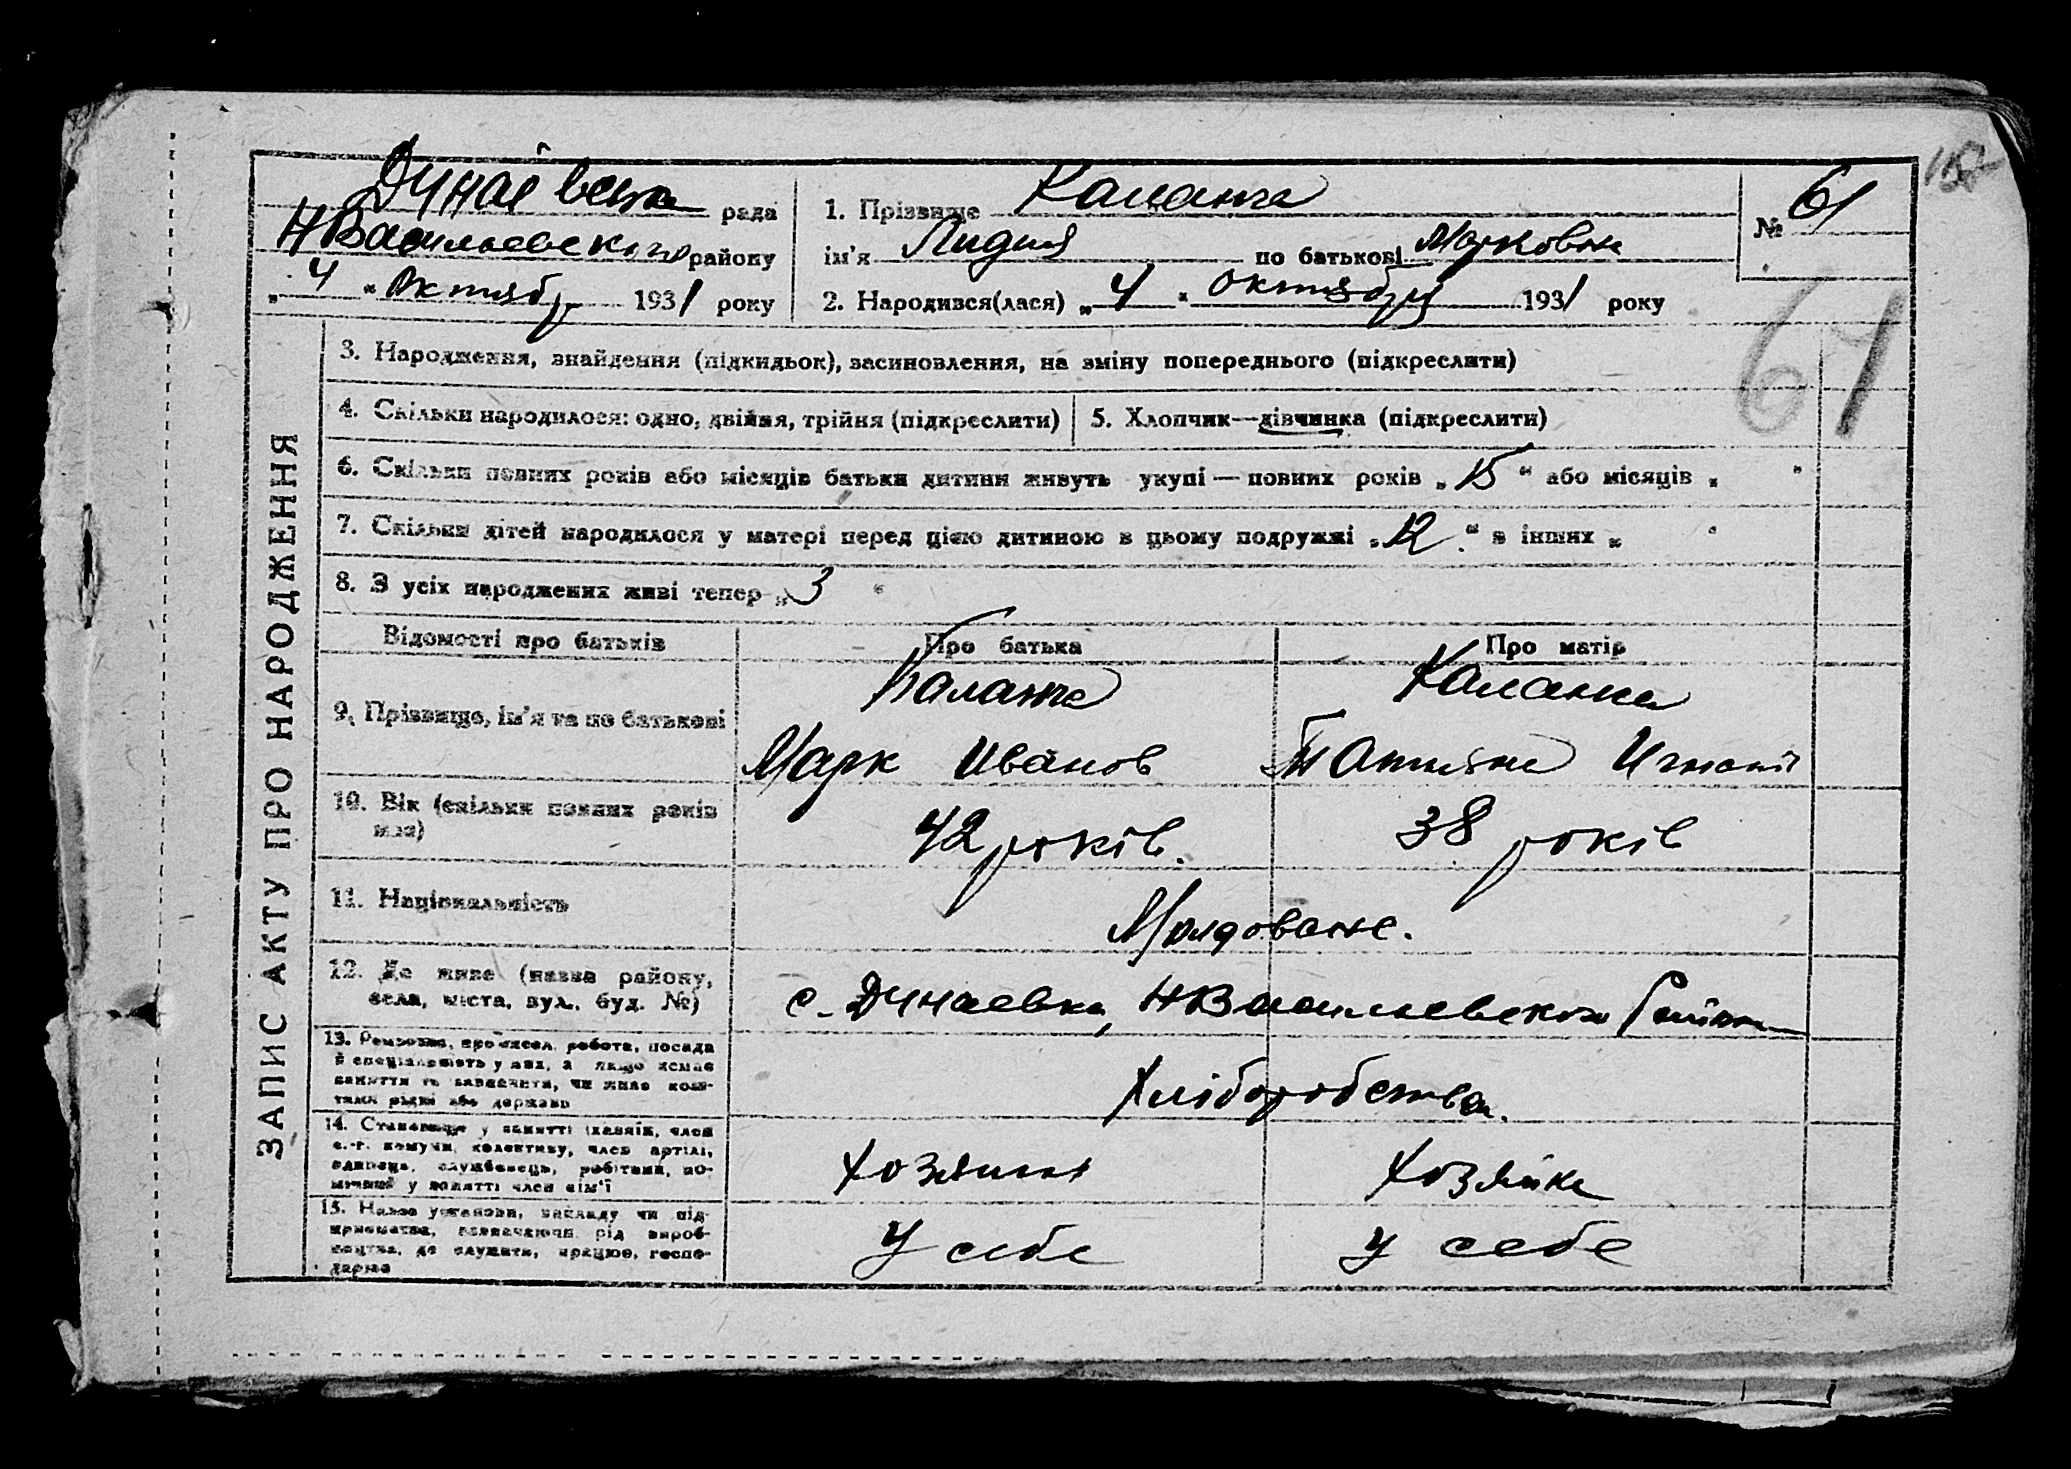 Дунаевська рада
НВасильевского району
„4“ Октябр 1931 року
1. Прізвище Каланжа
ім'я Лидия по батькові Марковна
2. Народився(лася) „4“ октября 1931 року
№ 61
61
ЗАПИС АКТУ ПРО НАРОДЖЕННЯ
3. Народження, знайдення (підкидьок), засиновлення, на зміну попереднього (підкреслити)
4. Скільки народилося: одно, двійня, трійня (підкреслити)
5. Хлопчик—дівчинка (підкреслити)
6. Скільки повних років або місяців батьки дитини живуть укупі — повних років „15“ або місяців „ “
7. Скільки дітей народилося у матері перед цією дитиною в цьому подружжі „12.“ в інших „ “
8. З усіх народжених живі тепер „3“
Відомості про батьків
Про батька
Про матір
9. Прізвище, ім'я та по батькові
Каланжа
Марк Иванов
Каланжа
Татияна
10. Вік (скільки повних років має)
42 років.
38 років
11. Національність
Молдоване.
12. Де живе (назва району,
села, міста, вул., буд. №)
с. Дунаевка, НВасильевского Району
13. Ремество, професія, робота, посада
й спеціяльність у них, а якщо немає
заняття то зазначити, чи живе кош-
тами рідні або держави
Хліборобства.
14. Становище у занятті (хазяїн, член
с.-г. комуни, колективу, член артілі,
одинець, службовець, робітник, по-
мічний у занятті член сім'ї
хозяин
хозяйка
15. Назва установи, закладу чи під-
приємства, зазначаючи рід вироб-
ництва, де служить, працює, госпо-
дарює
У себе
У себе